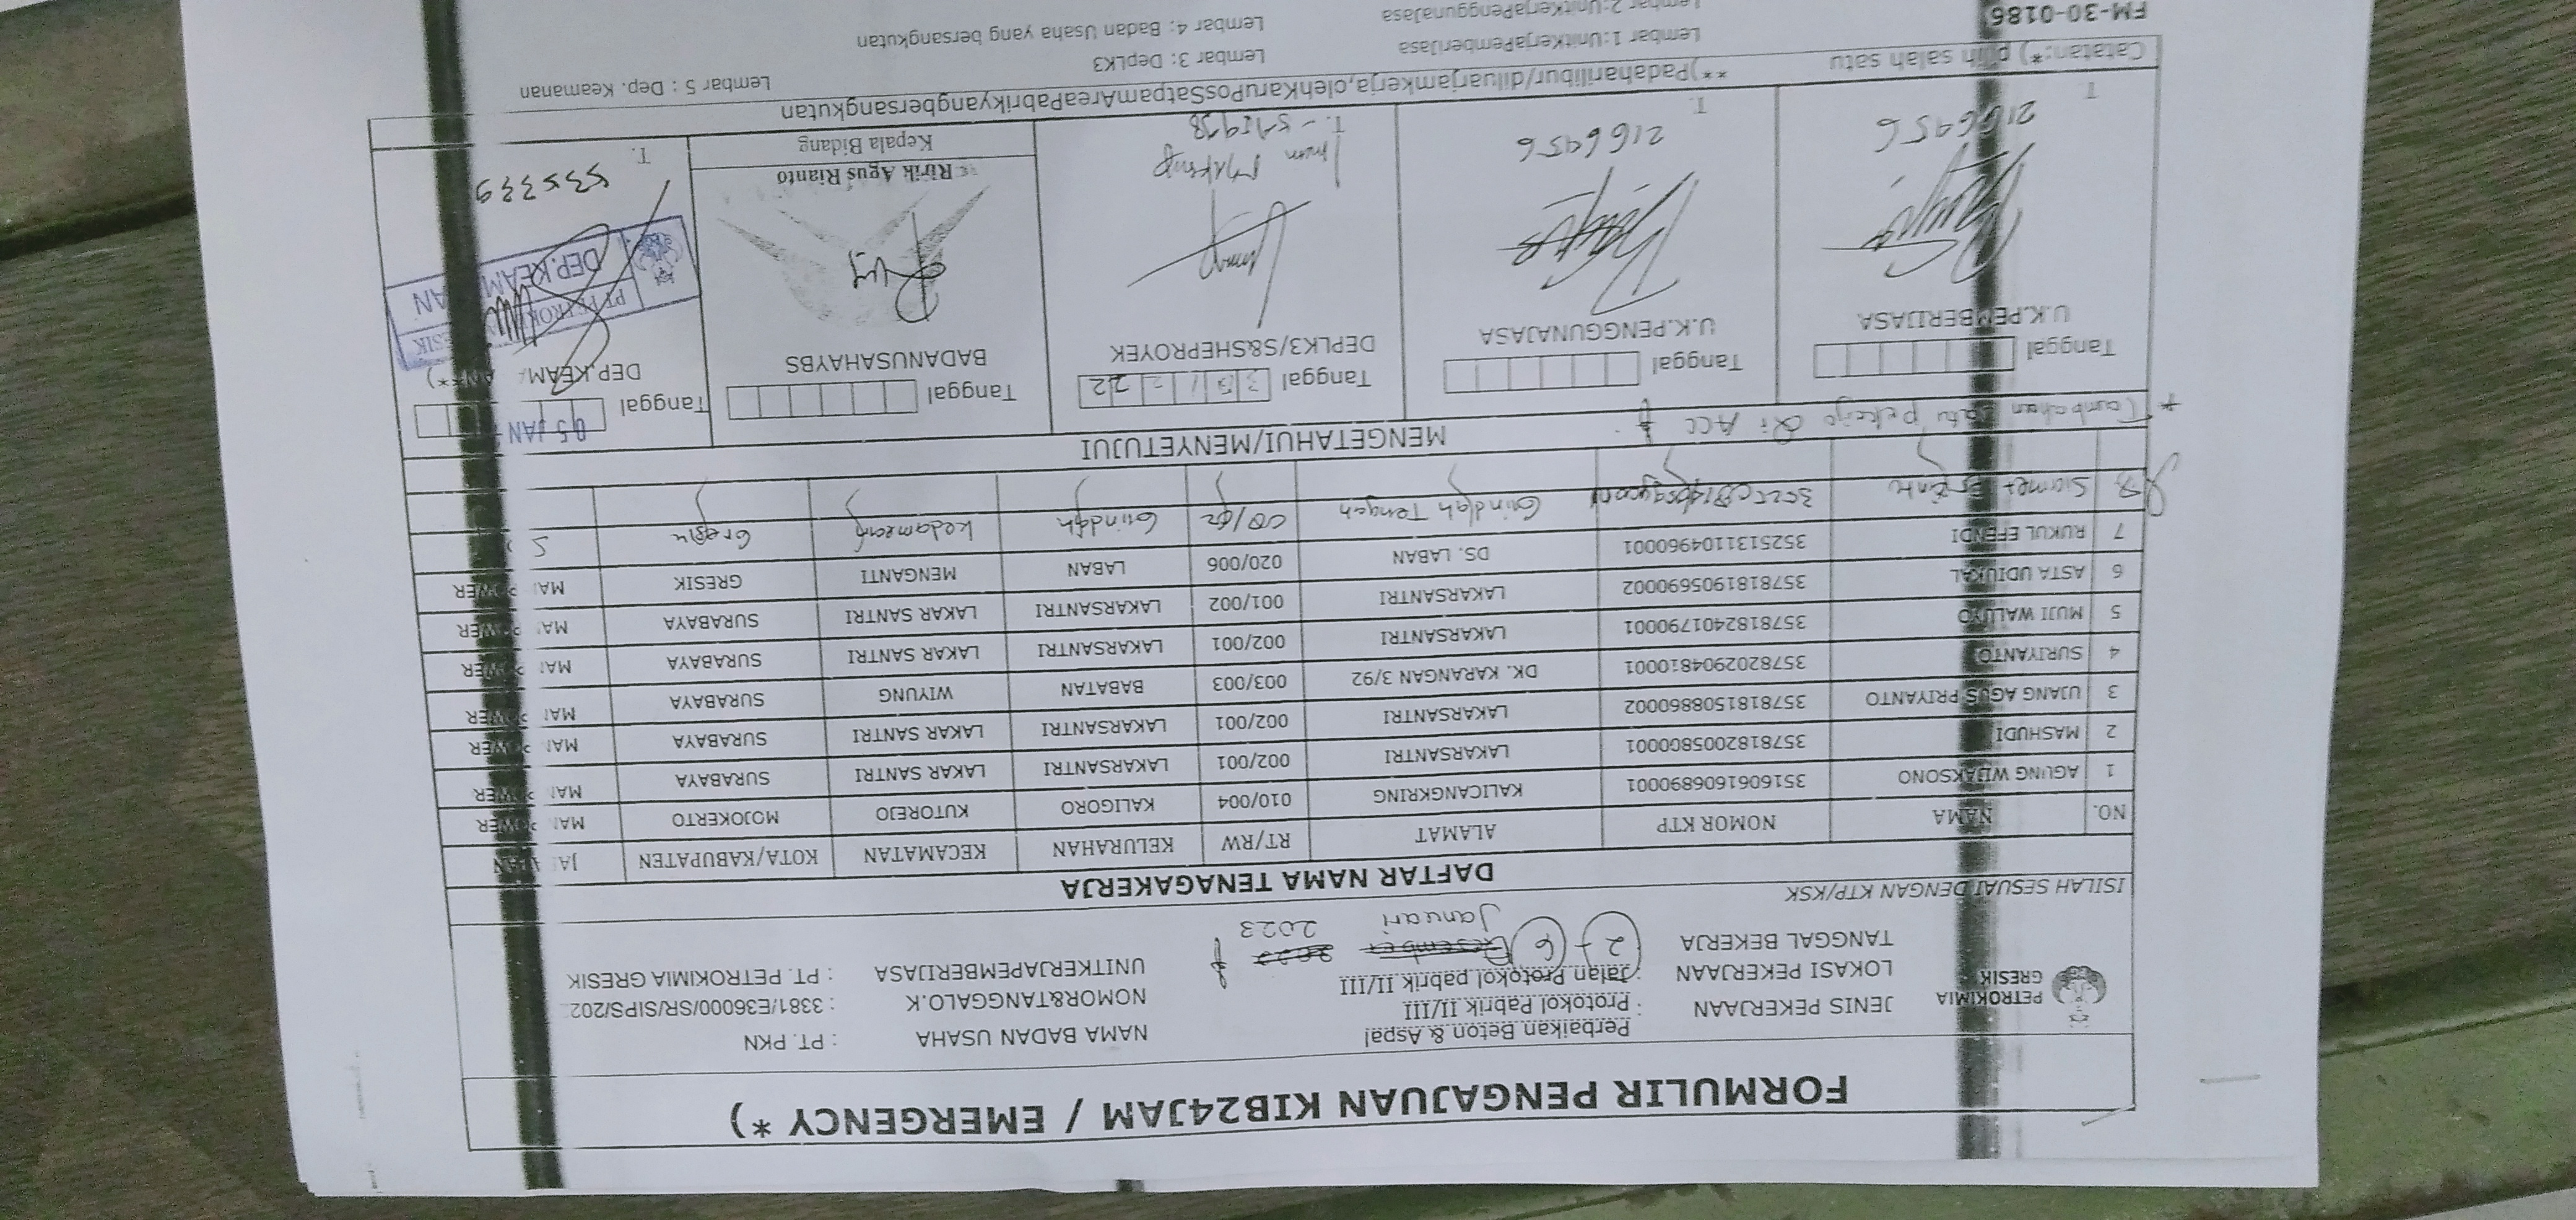 FORMULIR PENGAJUAN KIB24JAM / EMERGENCY *)
PETROKIMIA
GRESIK
JENIS PEKERJAAN : Perbaikan Beton & Aspal
Protokol Pabrik II/III
LOKASI PEKERJAAN : Jalan Protokol pabrik II/III
TANGGAL BEKERJA 2 - 6 Desember 2022
Januari 2023
NAMA BADAN USAHA : PT. PKN
NOMOR&TANGGALO.K : 3381/E36000/SR/SIPS/202
UNITKERJAPEMBERIJASA : PT. PETROKIMIA GRESIK
ISILAH SESUAI DENGAN KTP/KSK
DAFTAR NAMA TENAGAKERJA
NO. NAMA NOMOR KTP ALAMAT RT/RW KELURAHAN KECAMATAN KOTA/KABUPATEN
1 AGUNG WIJAKSONO 3516061606890001 KALICANGKRING 010/004 KALIGORO KUTOREJO MOJOKERTO MAN POWER
2 MASHUDI 3578182005800001 LAKARSANTRI 002/001 LAKARSANTRI LAKAR SANTRI SURABAYA MAN POWER
3 UJANG AGUS PRIYANTO 3578181508860002 LAKARSANTRI 002/001 LAKARSANTRI LAKAR SANTRI SURABAYA MAN POWER
4 SURIYANTO 3578202904810001 DK. KARANGAN 3/92 003/003 BABATAN WIYUNG SURABAYA MAN POWER
5 MUJI WALUYO 3578182401790001 LAKARSANTRI 002/001 LAKARSANTRI LAKAR SANTRI SURABAYA MAN POWER
6 ASTA UDIUKAL 3578181905690002 LAKARSANTRI 001/002 LAKARSANTRI LAKAR SANTRI SURABAYA MAN POWER
7 RUKUL EFENDI 3525131104960001 DS. LABAN 020/006 LABAN MENGANTI GRESIK MAN POWER
8 Slamet Gresik
* Tambahan satu pekerja di ACC
MENGETAHUI/MENYETUJUI
Tanggal
U.K.PEMBERIJASA
2166456
T.
Tanggal
U.K.PENGGUNAJASA
2166456
T.
Tanggal 22
DEPLK3/S&SHEPROYEK
T.
Tanggal
BADANUSAHAYBS
Ririk Agus Rianto
Kepala Bidang
Tanggal 05 JAN
DEP.KEAMANAN**)
PT PETROKIMIA GRESIK
DEP.KEAMANAN
535339
T.
Catatan:*) pilih salah satu **)Padaharilibur/diluarjamkerja,olehKaruPosSatpamAreaPabrikyangbersangkutan
Lembar 1:UnitKerjaPemberiJasa Lembar 3: DepLK3 Lembar 5 : Dep. Keamanan
Lembar 2:UnitKerjaPenggunaJasa Lembar 4: Badan Usaha yang bersangkutan
FM-30-0186